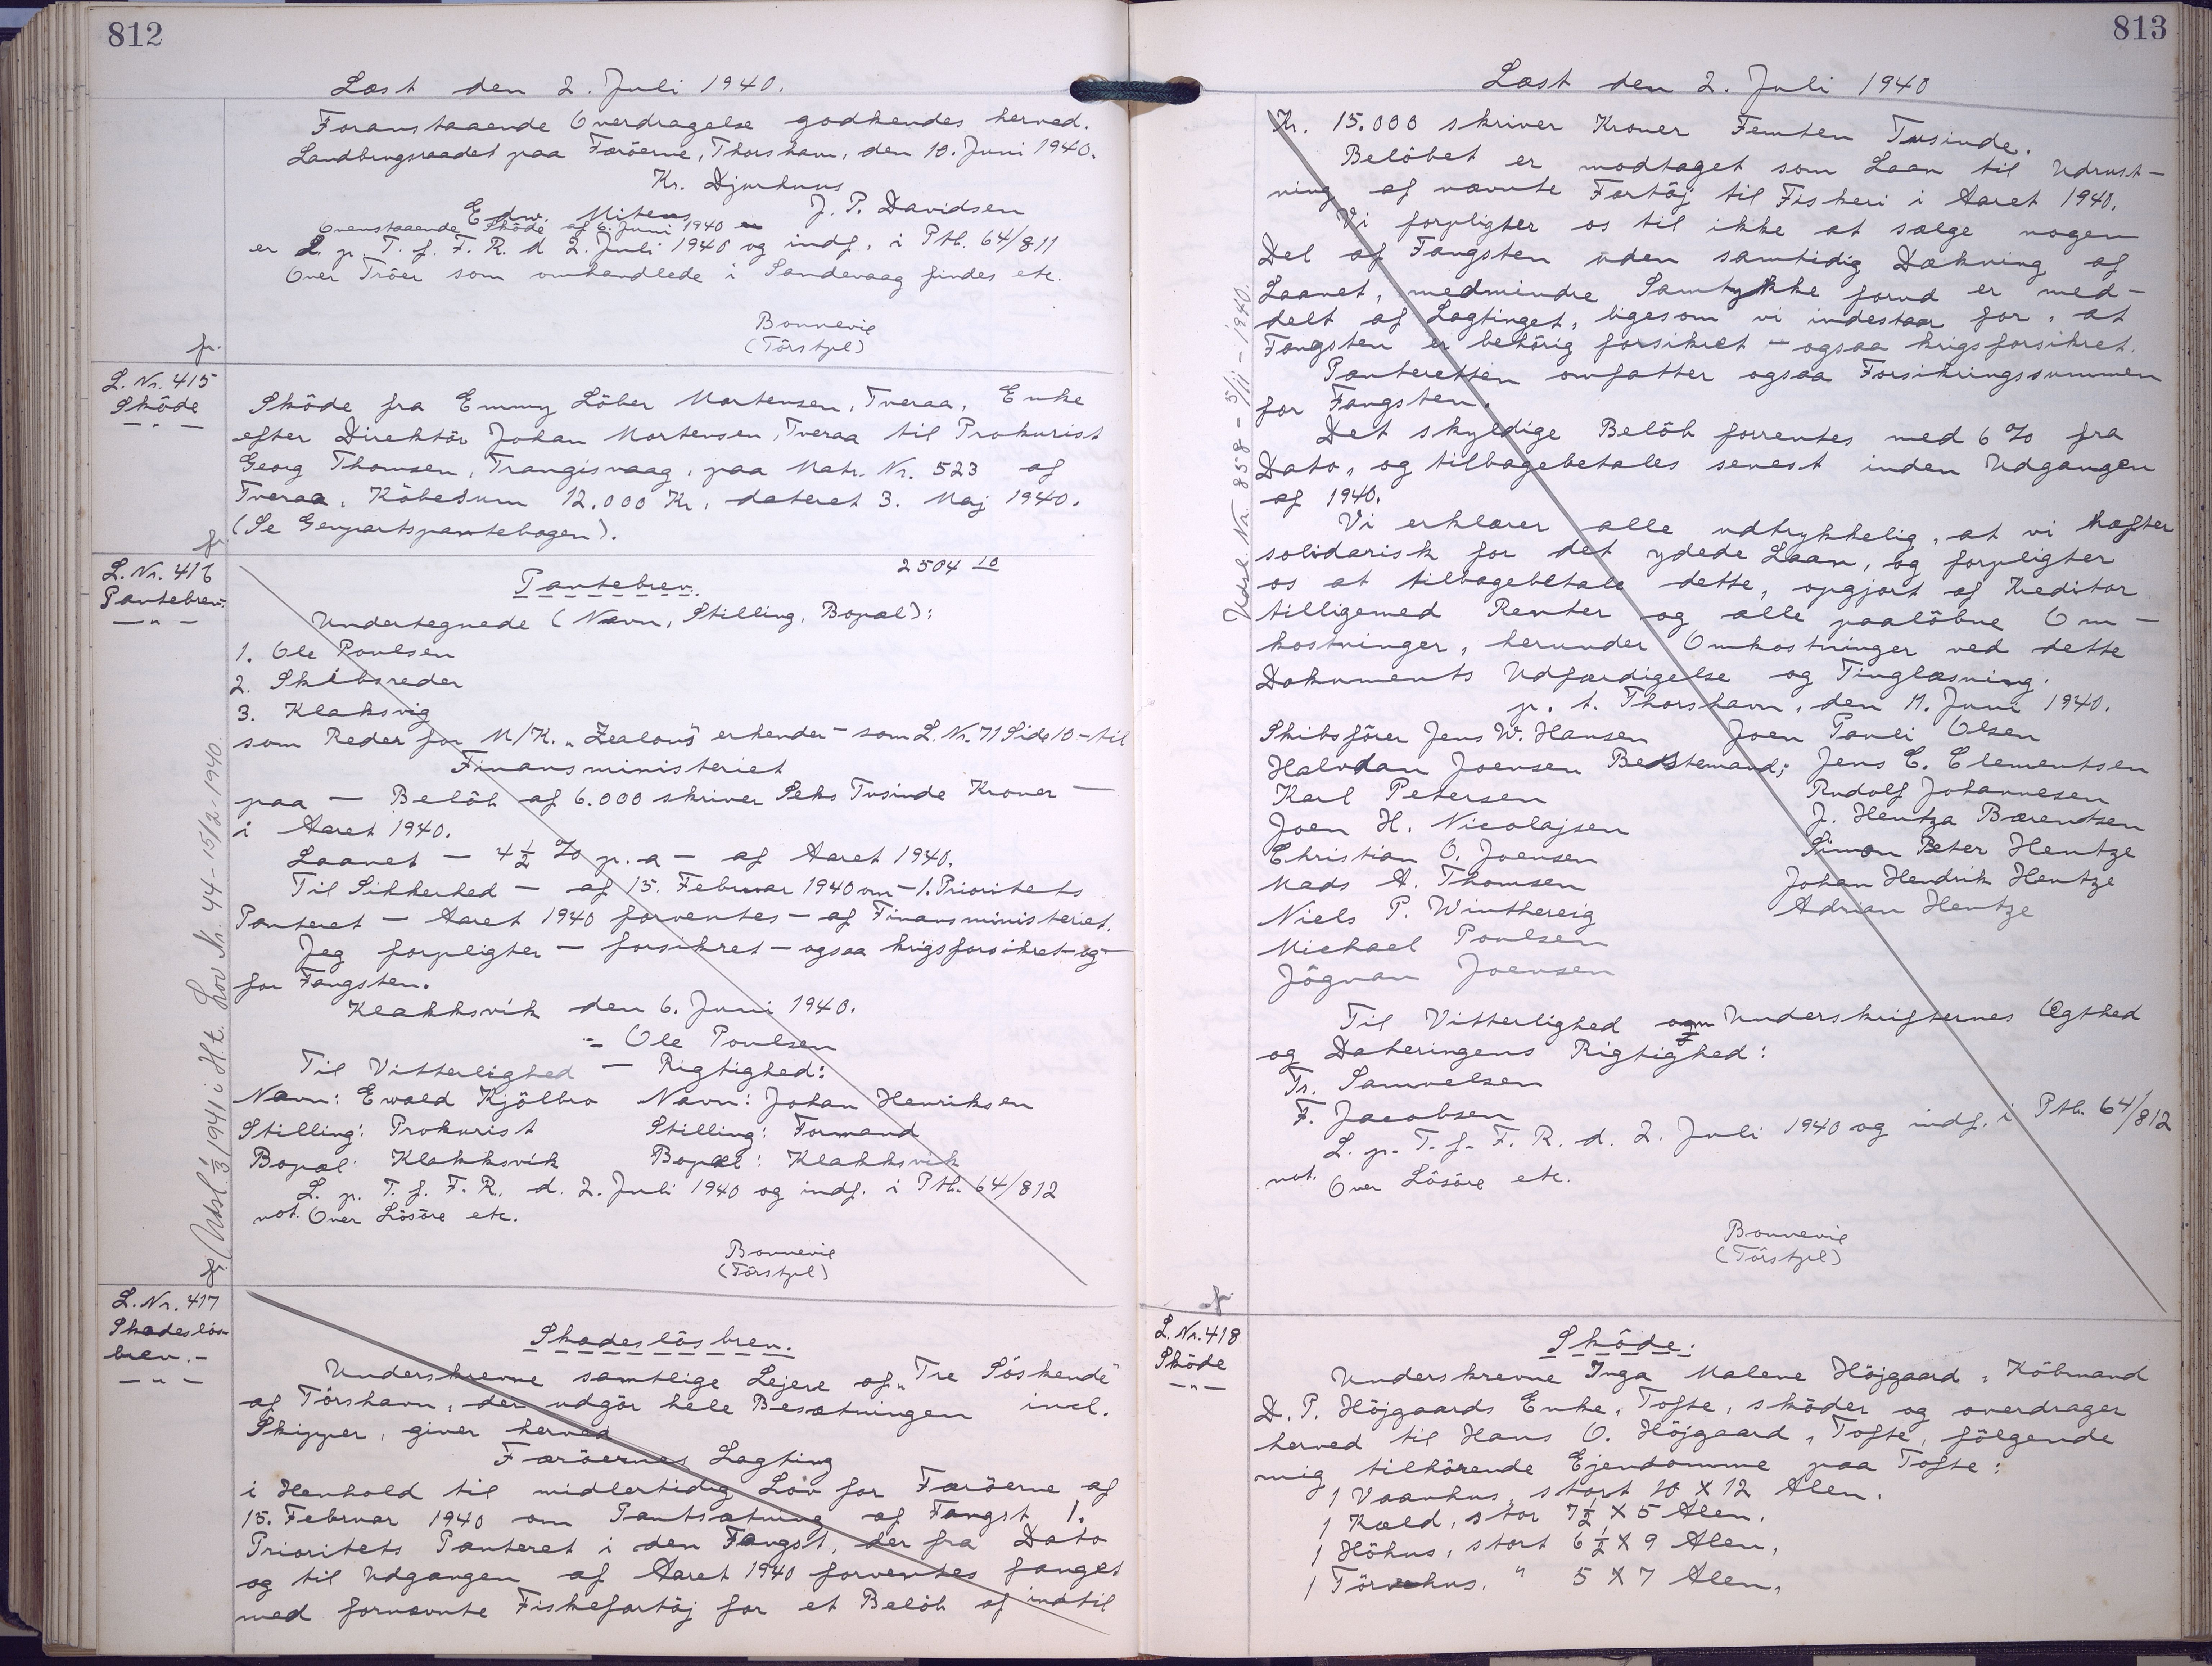 812
Læst den 2. Juli 1940.
Foranstaaende Overdragelse godkendes herved.
Landbrugsraadet paa Færöerne, Thorshavn, den 10. Juni 1940.
Kr. Djurhuus
Edw. Mitens J. P. Davidsen
Ovenstaaende Sköde af 6. Juni 1940
er L. p. T. f. F. R. d. 2. Juli 1940 og indf. i Ptb. 64/811
Over Tröer som omhandlede i Sandevaag findes etc.
Bonnevie
(Törstzel)
fr.
L. Nr. 415
Sköde
— " —
Sköde fra Emmy Löber Mortensen, Tveraa, Enke
efter Direktör Johan Mortensen, Tveraa til Prokurist
Georg Thomsen, Trangisvaag, paa Matr. Nr. 523 af
Tveraa. Köbesum 12.000 Kr., dateret 3. Maj 1940.
(Se Genpartspantebogen).
fr.
L. Nr. 416
Pantebrev.
— " —
2504 10
Pantebrev.
Undertegnede (Navn, Stilling, Bopæl):
1. Ole Poulsen
2. Skibsreder
3. Klaksvig
som Reder for M/K. „Zealous" erkender – som L. Nr. 71 Side 10 – til
Finansministeriet
paa — Belöb af 6.000 skriver Seks Tusinde Kroner —
i Aaret 1940.
Laanet — 4 1/2 % p. a — af Aaret 1940.
Til Sikkerhed — af 15. Februar 1940 om – 1. Prioritets
Panteret — Aaret 1940 forventes – af Finansministeriet.
Jeg forpligter — forsikret – ogsaa krigsforsikret – og –
for Fangsten.
Klakksvik den 6. Juni 1940.
= Ole Poulsen
Til Vitterlighed — Rigtighed:
Navn: Ewald Kjölbro Navn: Johan Henriksen
Stilling: Prokurist Stilling: Formand
Bopæl: Klakksvik Bopæl: Klakksvik
L. p. T. f. F. R. d. 2. Juli 1940 og indf. i Ptb. 64/812
not. Over Lösöre etc.
Bonnevie
(Törstzel)
Udsl. 1/3 1941 i H.t. Lov Nr. 44 - 15/2 - 1940.
L. Nr. 417
Skadeslös-
brev. –
— " —
Skadeslösbrev.
Underskrevne samtlige Lejere af „Tre Söskende"
af Tórshavn, der udgör hele Besætningen incl.
Skipper, giver herved
Færöernes Lagting
i Henhold til midlertidig Lov for Færöerne af
15. Februar 1940 om Pantsætning af Fangst 1.
Prioritets Panteret i den Fangst, der fra Dato
og til Udgangen af Aaret 1940 forventes fanget
med fornævnte Fiskefartöj for et Belöb af indtil
813
Læst den 2. Juli 1940
Kr. 15.000 skriver Kroner Femten Tusinde.
Belöbet er modtaget som Laan til Udrust-
ning af nævnte Fartöj til Fiskeri i Aaret 1940.
Vi forpligter os til ikke at sælge nogen
Del af Fangsten uden samtidig Dækning af
Laanet, medmindre Samtykke forud er med-
delt af Lagtinget, ligesom vi indestaar for, at
Fangsten er behörig forsikret – ogsaa krigsforsikret.
Panteretten omfatter ogsaa Forsikringssummen
for Fangsten.
Det skyldige Belöb forrentes med 6 % fra
Dato, og tilbagebetales senest inden Udgangen
af 1940.
Vi erklærer alle udtrykkelig, at vi hæfter
solidarisk for det ydede Laan, og forpligter
os at tilbagebetale dette, opgjort af Kreditor
tilligemed Renter og alle paalöbne Om-
kostninger, herunder Omkostninger ved dette
Dokuments Udfærdigelse og Tinglæsning.
p. t. Thorshavn, den 11. Juni 1940.
Skibsförer Jens W. Hansen Joen Pauli Olsen
Halvdan Joensen Bedstemand; Jens C. Clementsen
Karl Petersen Rudolf Johannesen
Joen H. Nicolajsen J. Hentza Bærentsen
Christian O. Joensen Simon Peter Hentze
Mads A. Thomsen Johan Hendrik Hentze
Niels P. Winthereig Adrian Hentze
Michael Poulsen
Jögvan Joensen
Til Vitterlighed om Underskrifternes Ægthed
og Dateringens Rigtighed:
Tr. Samuelsen
F. Jacobsen
L. p. T. f. F. R. d. 2. Juli 1940 og indf. i Ptb. 64/812
not. Over Lösöre etc.
Bonnevie
(Törstzel)
Udsl. Nr. 858 - 5/11 - 1940.
fr.
L. Nr. 418
Sköde
— " —
Sköde.
Underskrevne Inga Malene Höjgaard, Köbmand
D. P. Höjgaards Enke, Tofte, sköder og overdrager
herved til Hans O. Höjgaard, Tofte, fölgende
mig tilhörende Ejendomme paa Tofte:
1 Vaanhus, stort 10 X 12 Alen.
1 Kæld, stor 7 1/2 X 5 Alen.
1 Höhus, stort 6 1/2 X 9 Alen,
1 Törvehus, " 5 X 7 Alen,